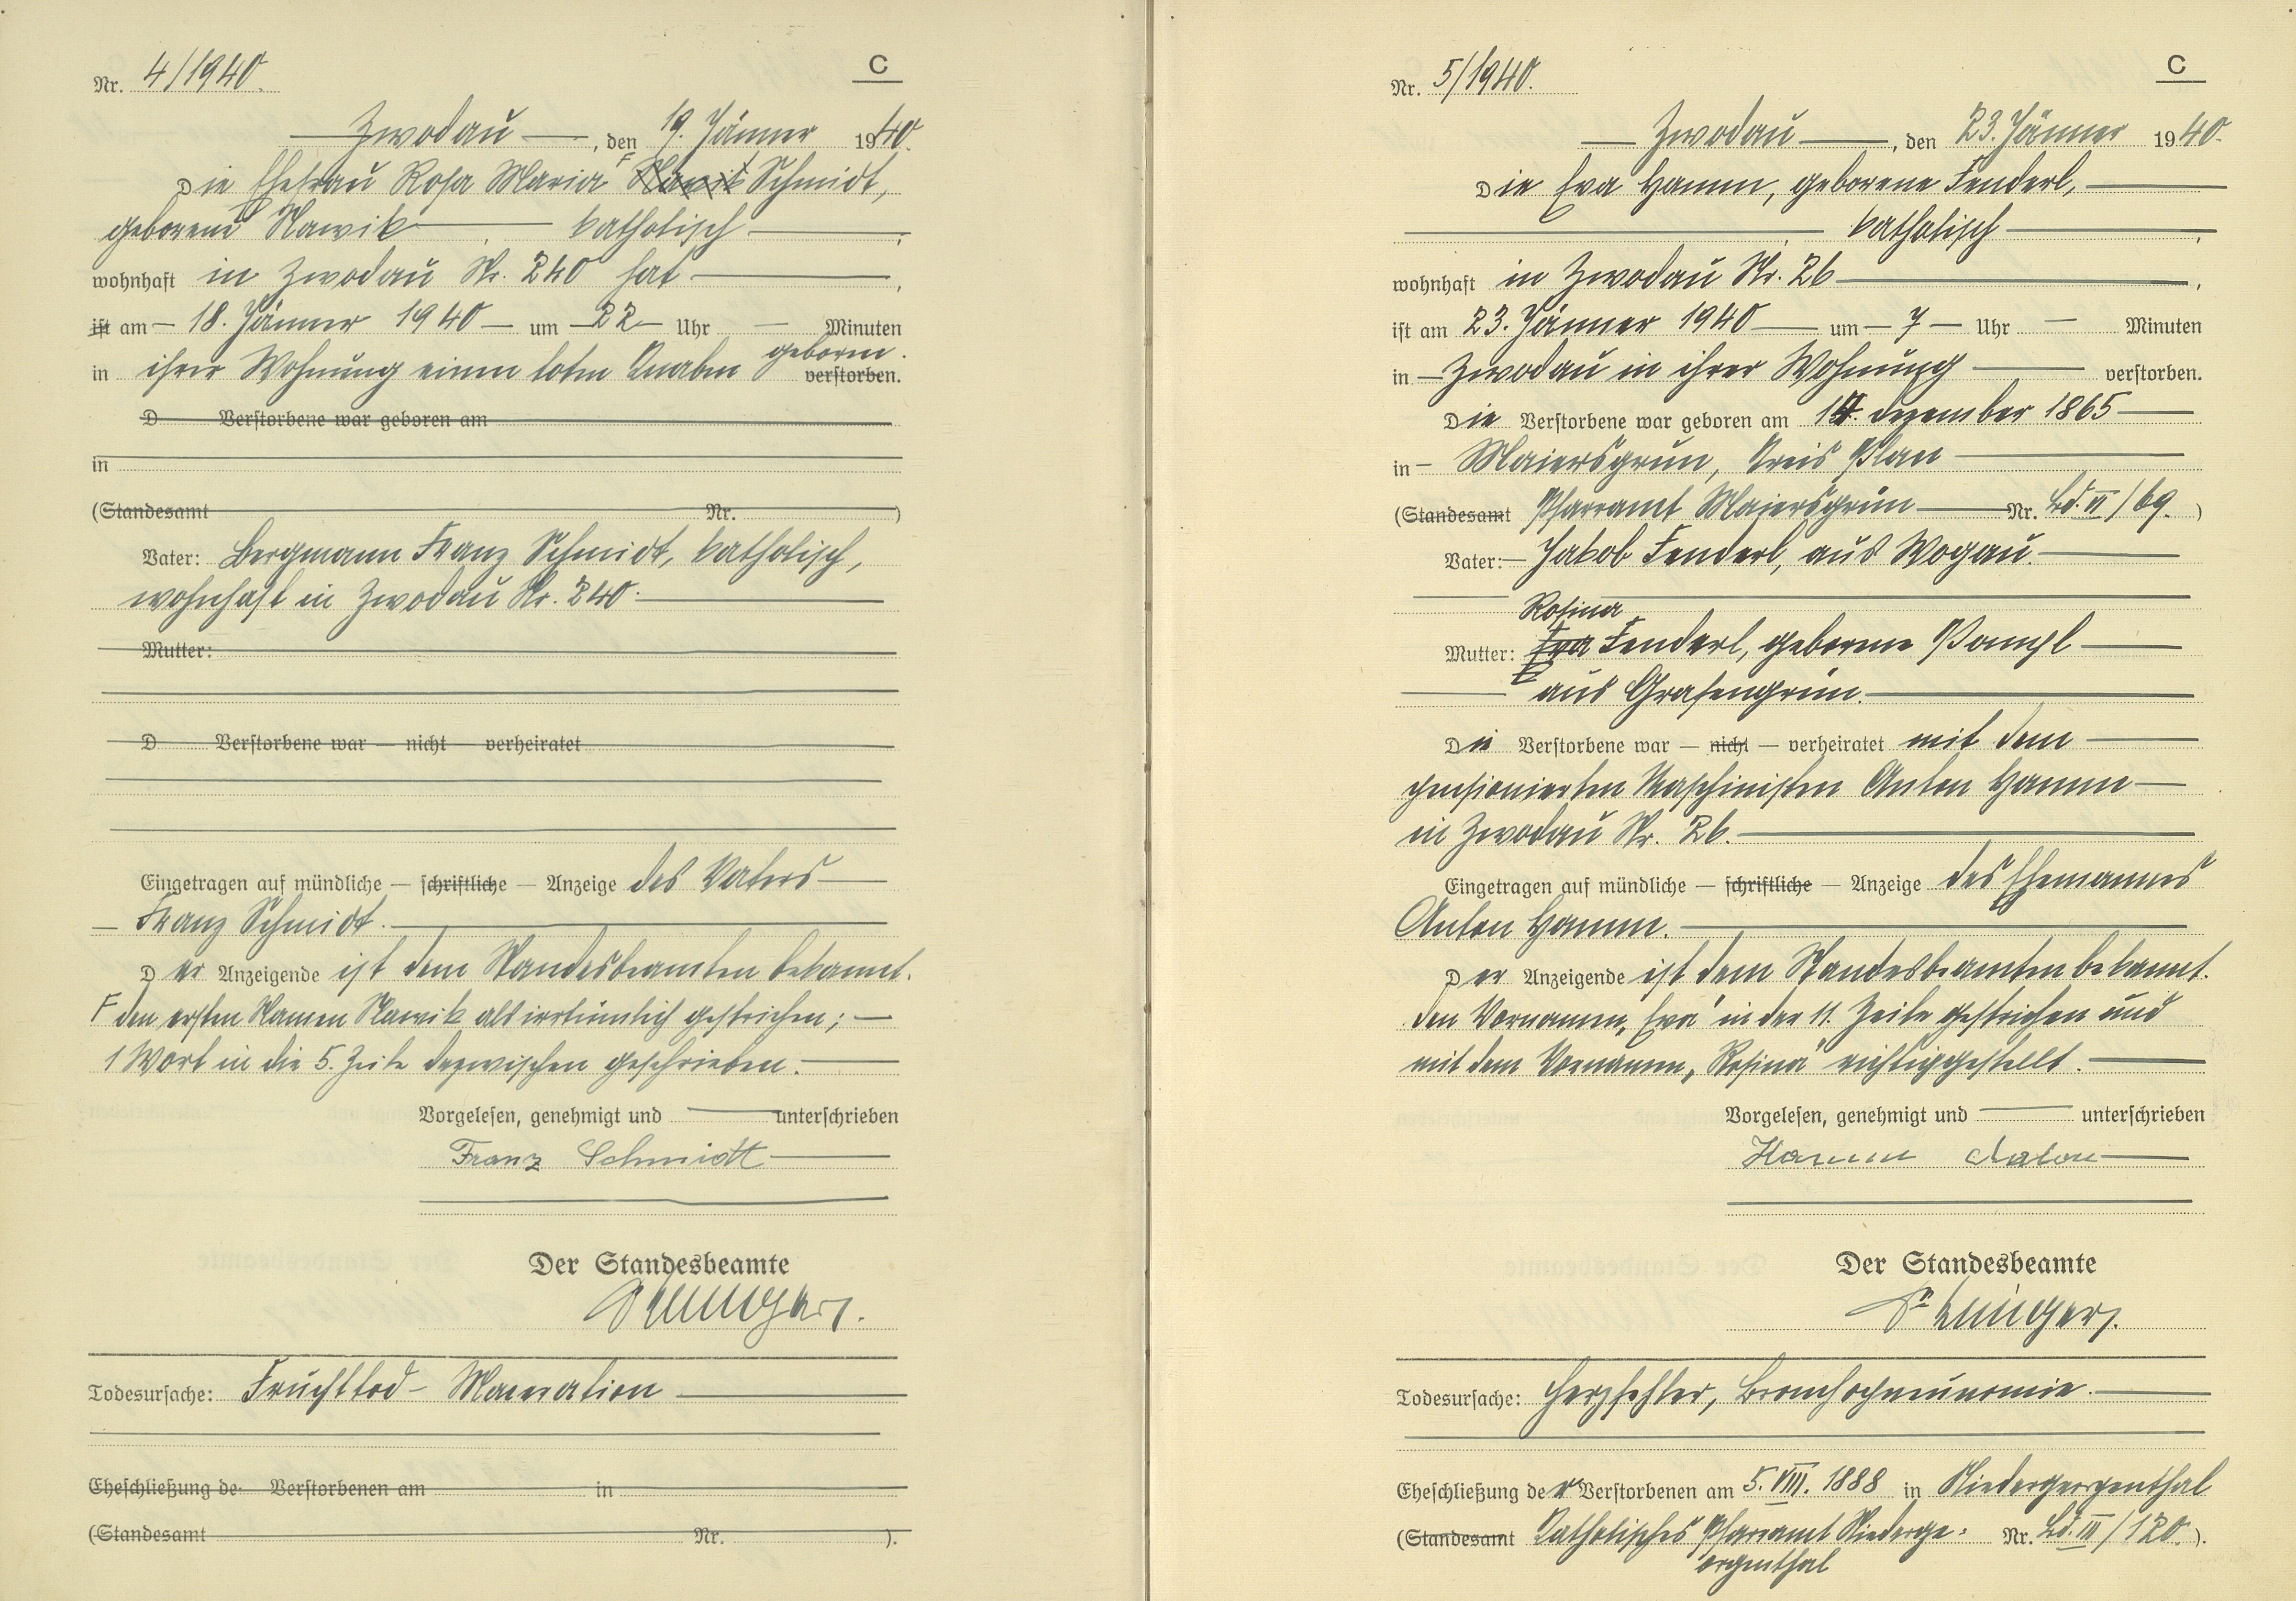 Nr. 4/1940.
C
Zwodau, den 19. Jänner 1940.
Die Ehefrau Rosa Maria F Slavik Schmidt,
geborene Slawik katholisch,
wohnhaft in Zwodau Nr. 240 hat,
ist am 18. Jänner 1940 um 22 Uhr — Minuten
geboren.
in ihrer Wohnung einen toten Knaben verstorben.
D Verstorbene war geboren am
in
(Standesamt Nr. )
Vater: Bergmann Franz Schmidt, katholisch,
wohnhaft in Zwodau Nr. 240.
Mutter:
D Verstorbene war — nicht — verheiratet
Eingetragen auf mündliche — schriftliche — Anzeige des Vaters
Franz Schmidt.
Der Anzeigende ist dem Standesbeamten bekannt.
F den ersten Namen Slawik als irrtümlich gestrichen;
1 Wort in die 5. Zeile dazwischen geschrieben.
Vorgelesen, genehmigt und unterschrieben
Franz Schmidt
Der Standesbeamte
Todesursache: Fruchttod - Maceration
Eheschließung de Verstorbenen am in
(Standesamt Nr. ).
Nr. 5/1940.
C
Zwodau, den 23. Jänner 1940.
Die Eva Hamm, geborene Fenderl,
katholisch,
wohnhaft in Zwodau Nr. 26,
ist am 23. Jänner 1940 um 7 Uhr — Minuten
in Zwodau in ihrer Wohnung verstorben.
Die Verstorbene war geboren am 14. Dezember 1865
in Maiersgrün, Kreis Plan
(Standesamt Pfarramt Maiersgrün Nr. Bd. II/69.)
Vater: Jakob Fenderl, aus Wogau.
Rosina
Mutter: Eva Fenderl, geborene
aus Grafengrün.
Die Verstorbene war — nicht — verheiratet mit dem
pensionierten Maschinisten Anton Hamm
in Zwodau Nr. 26.
Eingetragen auf mündliche — schriftliche — Anzeige des Ehemannes
Anton Hamm.
Der Anzeigende ist dem Standesbeamten bekannt.
den Vornamen „Eva" in der 11. Zeile gestrichen und
mit dem Vornamen „Rosina" richtiggestellt.
Vorgelesen, genehmigt und unterschrieben
Hamm Anton
Der Standesbeamte
Todesursache: Herzfehler, Bronchopneumonie.
Eheschließung der Verstorbenen am 5. VIII. 1888 in Niedergeorgenthal
(Standesamt Katholisches Pfarramt Niederge= Nr. Bd. III/120.).
orgenthal